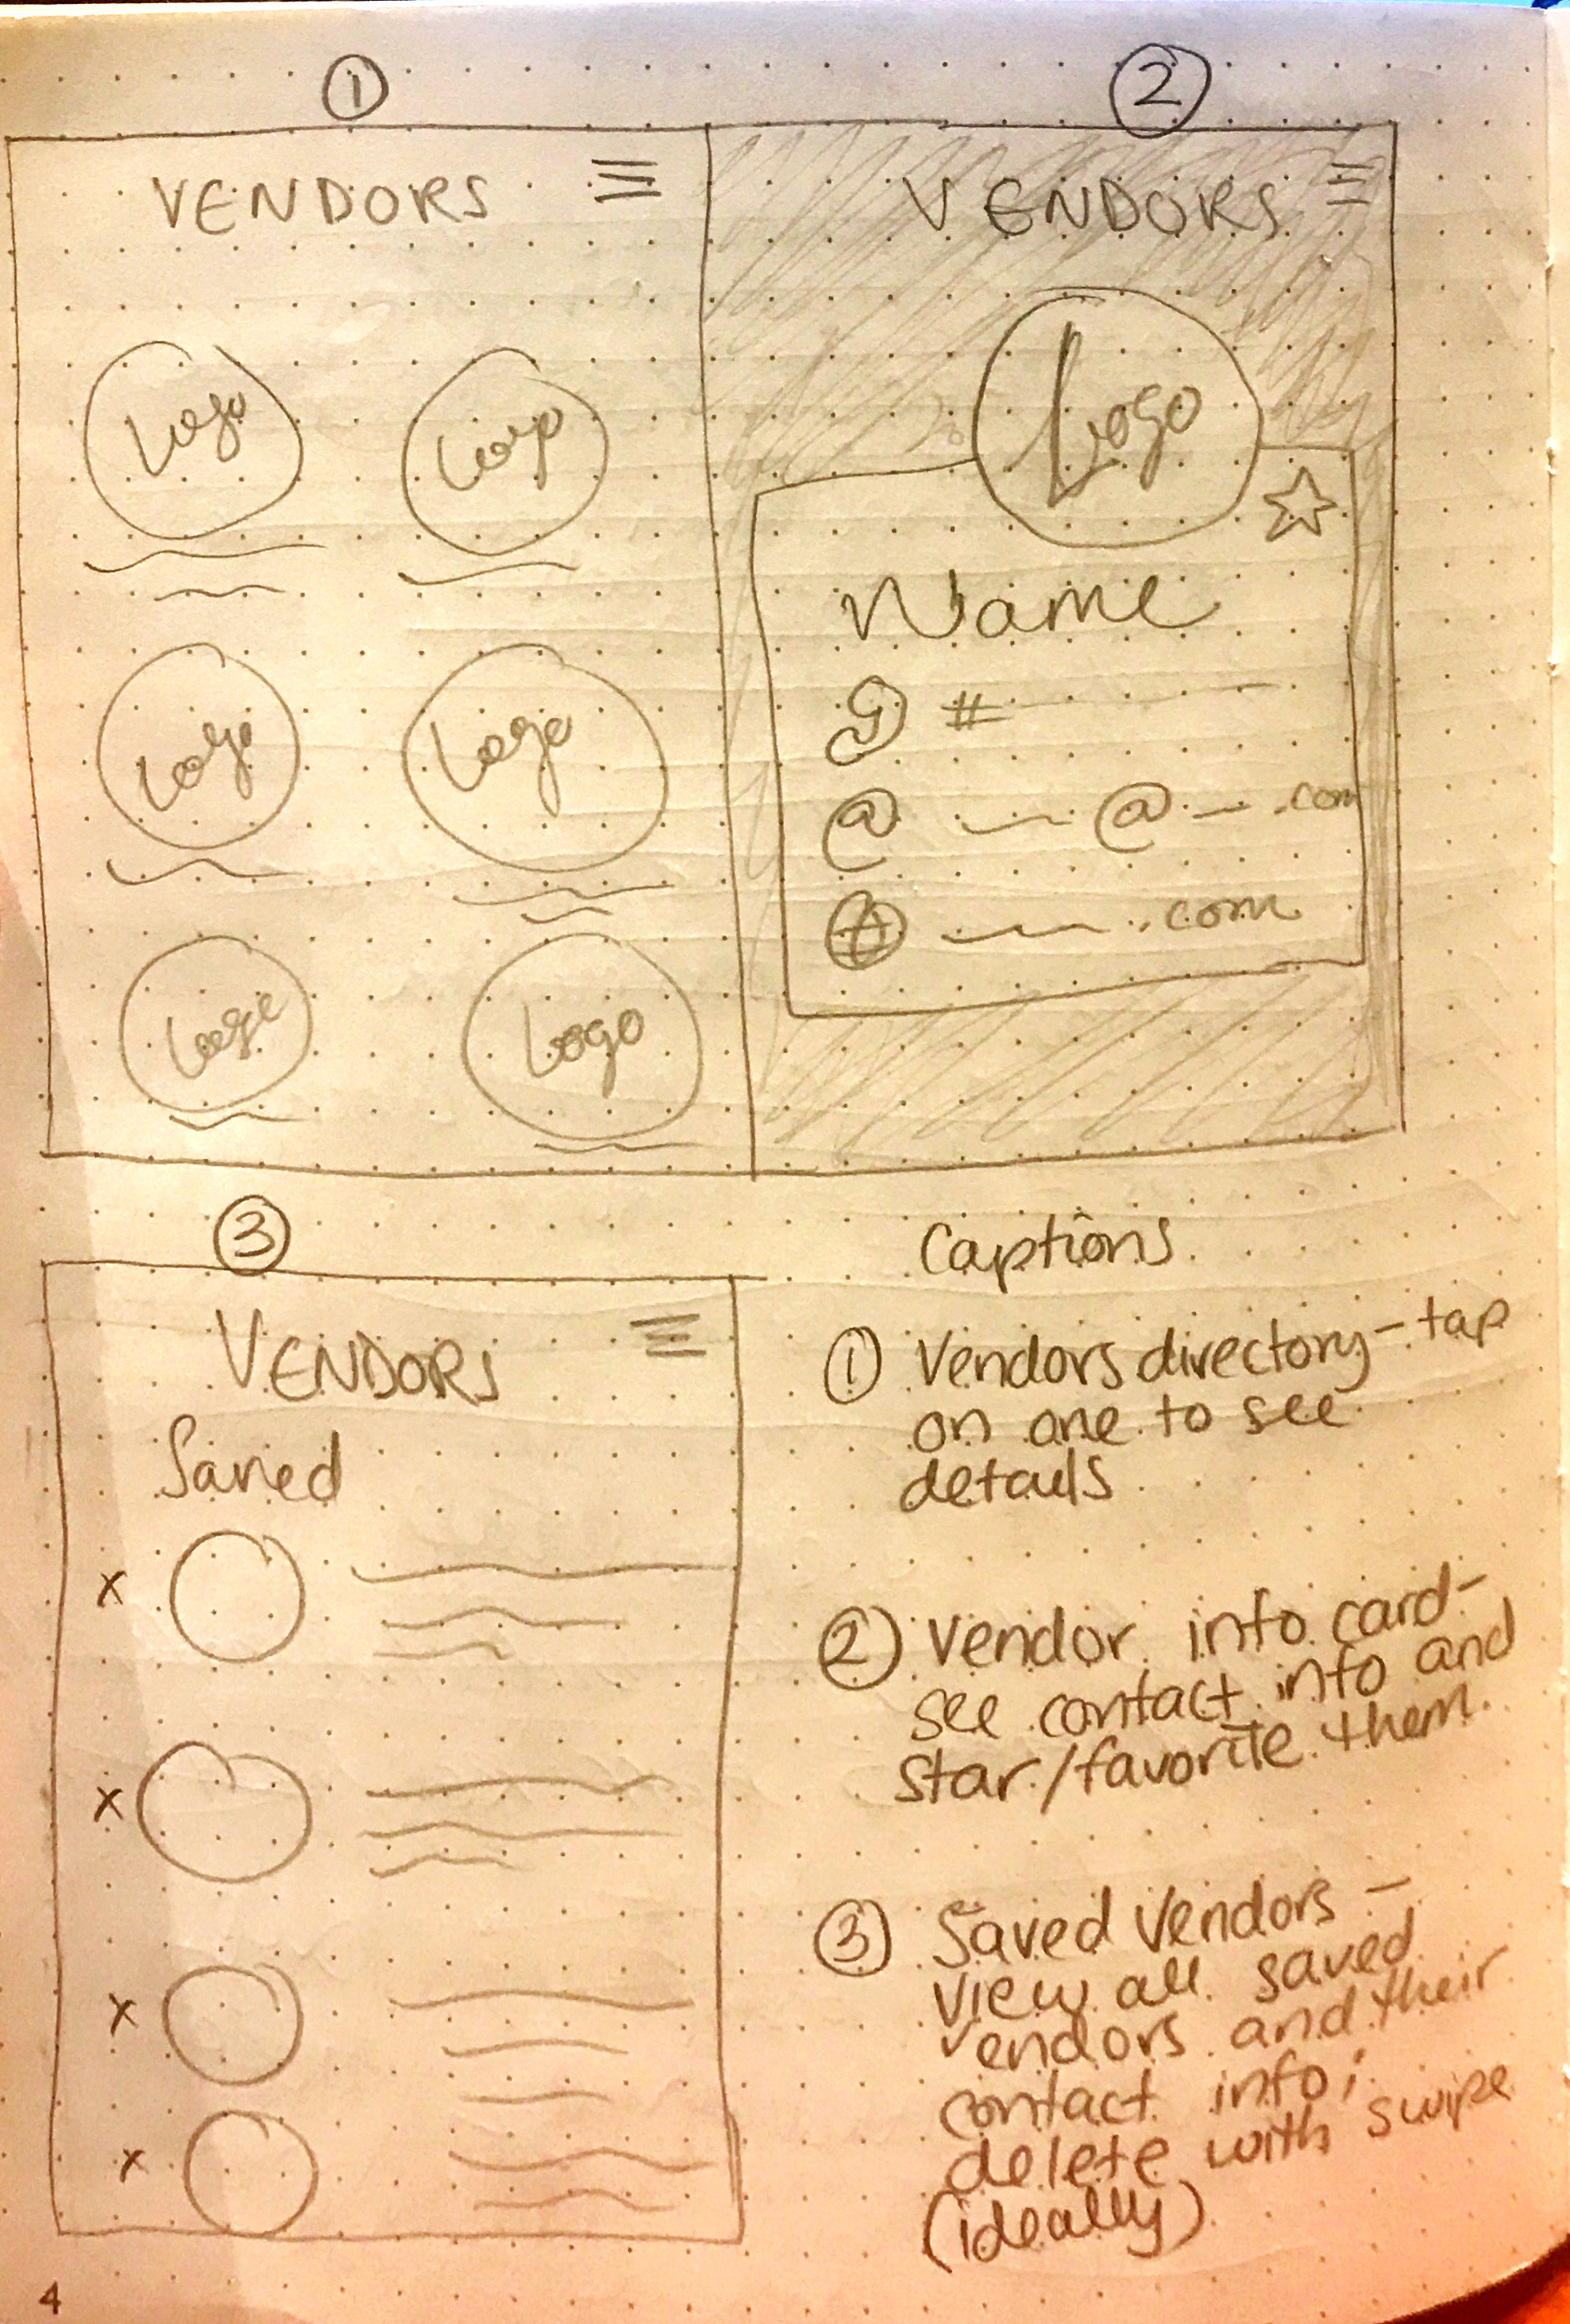 1
VENDORS
Logo
Logo
Logo
Logo
Logo
Logo
2
VENDORS
Logo
Name
#
@ @ .com
.com
3
VENDORS
Saved
x
x
x
x
Captions
1 Vendors directory - tap
on one to see
details
2 Vendor info card -
see contact info and
star/favorite them.
3 Saved Vendors -
view all saved
vendors and their
contact info;
delete with swipe
(ideally)
4